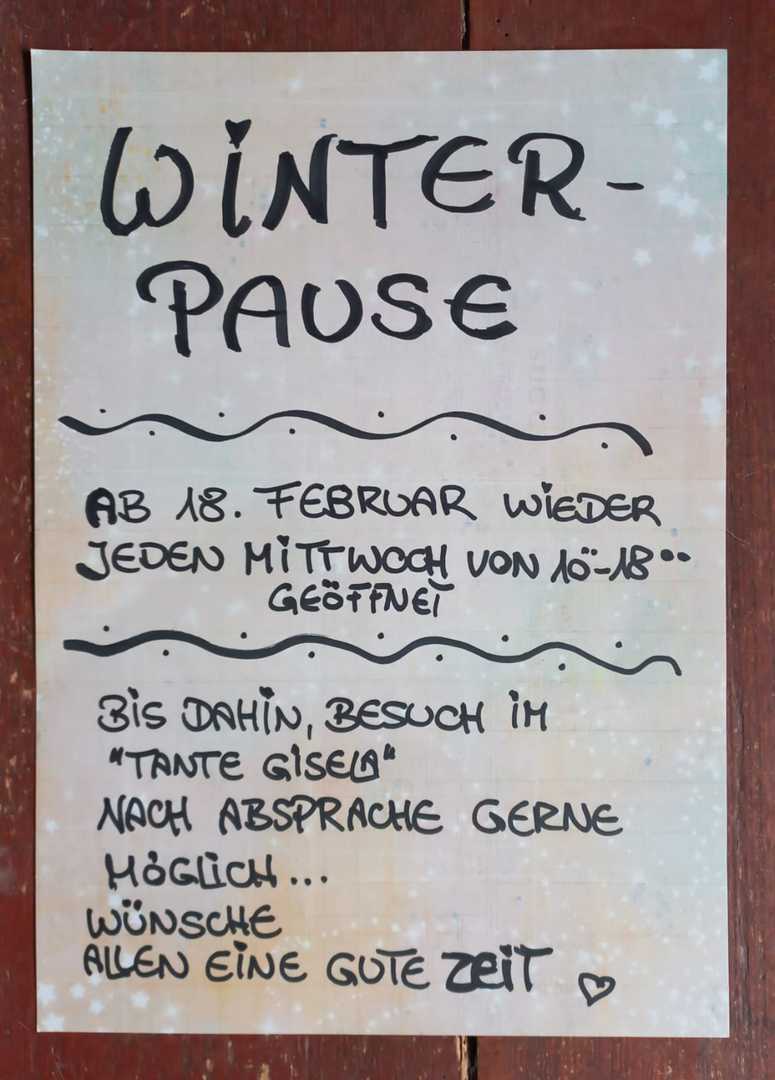 WiNTER-
PAUSE
AB 18. FEBRUAR WiEDER
JEDEN MiTTWOCH VON 10°°-18°°
GEÖFFNET
BiS DAHiN, BESUCH iM
"TANTE GiSELA"
NACH ABSPRACHE GERNE
MÖGLiCH...
WÜNSCHE
ALLEN EiNE GUTE ZEiT ♡